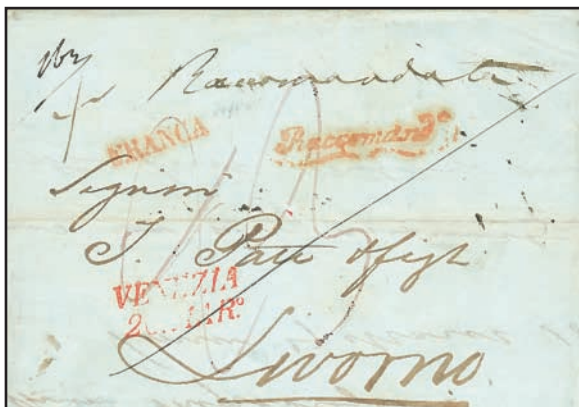 Raccomandata
FRANCA Raccomand.ta
Signori
J. Pate
VENEZIA
MAR.º
Livorno